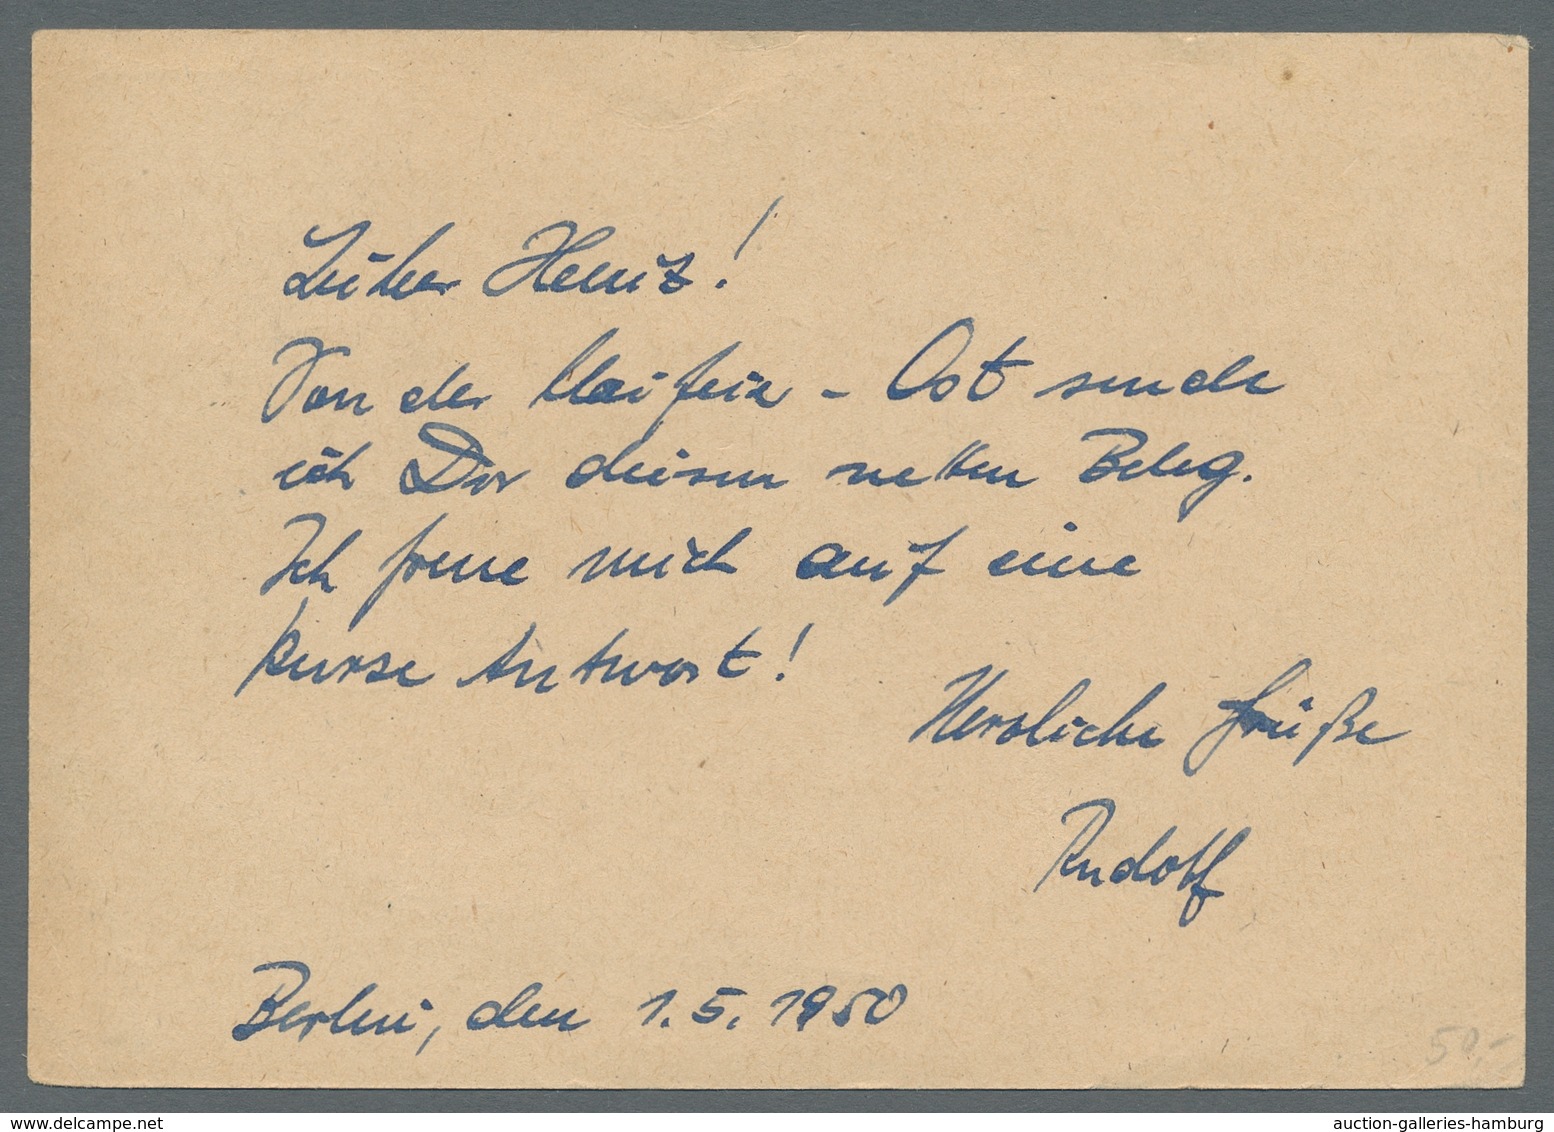 Lieber Heinz!
Von der Maifeier - Ost sende
ich Dir diesen netten Beleg.
Ich freue mich auf eine
kurze Antwort!
Herzliche Grüße
Rudolf
Berlin, den 1.5.1950
50,-
www.delcampe.net
auction-galleries-hamburg